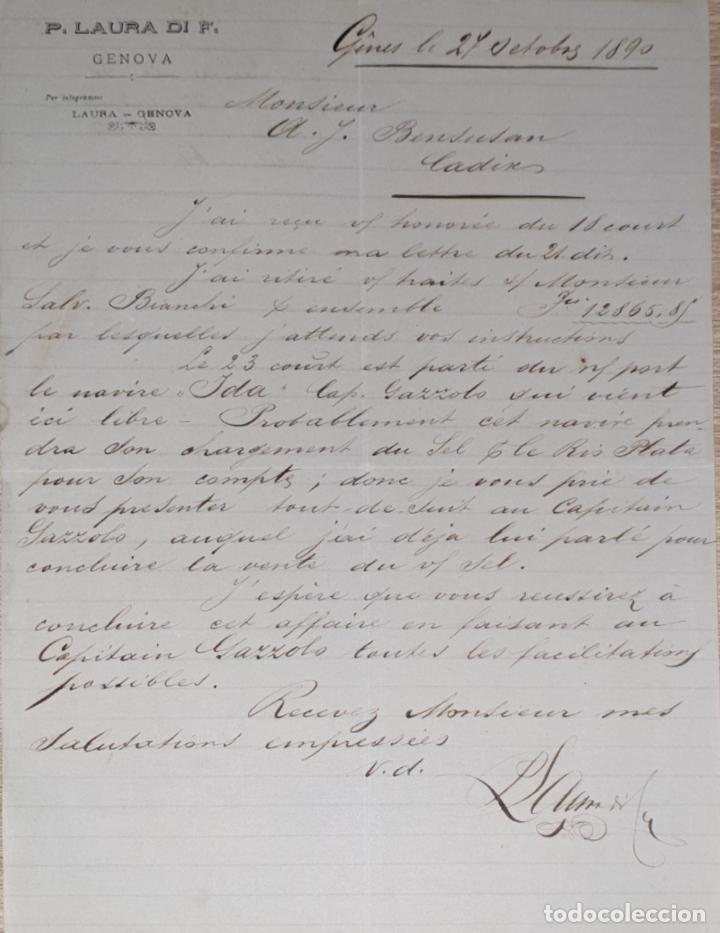 P. LAURA DI F.
GENOVA
Per telegrammi
LAURA – GENOVA
Gênes le 27 Octobre 1890
Monsieur
A. J. Bensusan
Cadix
J'ai reçu v/ honorée du 18 court
et je vous confirme ma lettre du 21. dit.
J'ai retiré v/ traites s/ Monsieur
Salv. Bianchi & ensemble Fcs 12865,85
par lesquelles j'attends vos instructions
Le 23 court est parti du n/ port
le navire "Ida" Cap. Gazzolo qui vient
ici libre – Probablement cet navire pren-
dra son chargement du Sel p le Rio Plata
pour son compte; donc je vous prie de
vous presenter tout-de-suit au Capitain
Gazzolo, auquel j'ai déja lui parlé pour
concluire la vente du v/ Sel.
J'espère que vous reussirez à
concluire cet affaire en faisant au
Capitain Gazzolo toutes les facilitations
possibles.
Recevez Monsieur mes
Salutations empressées
V. d.
P Laura di F
todocoleccion